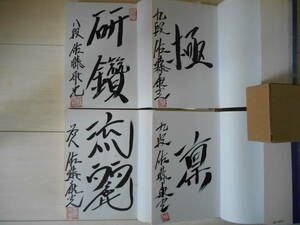 研鑽
八段 佐藤康光
極
九段 佐藤康光
流麗
佐藤康光
凛
九段 佐藤康光